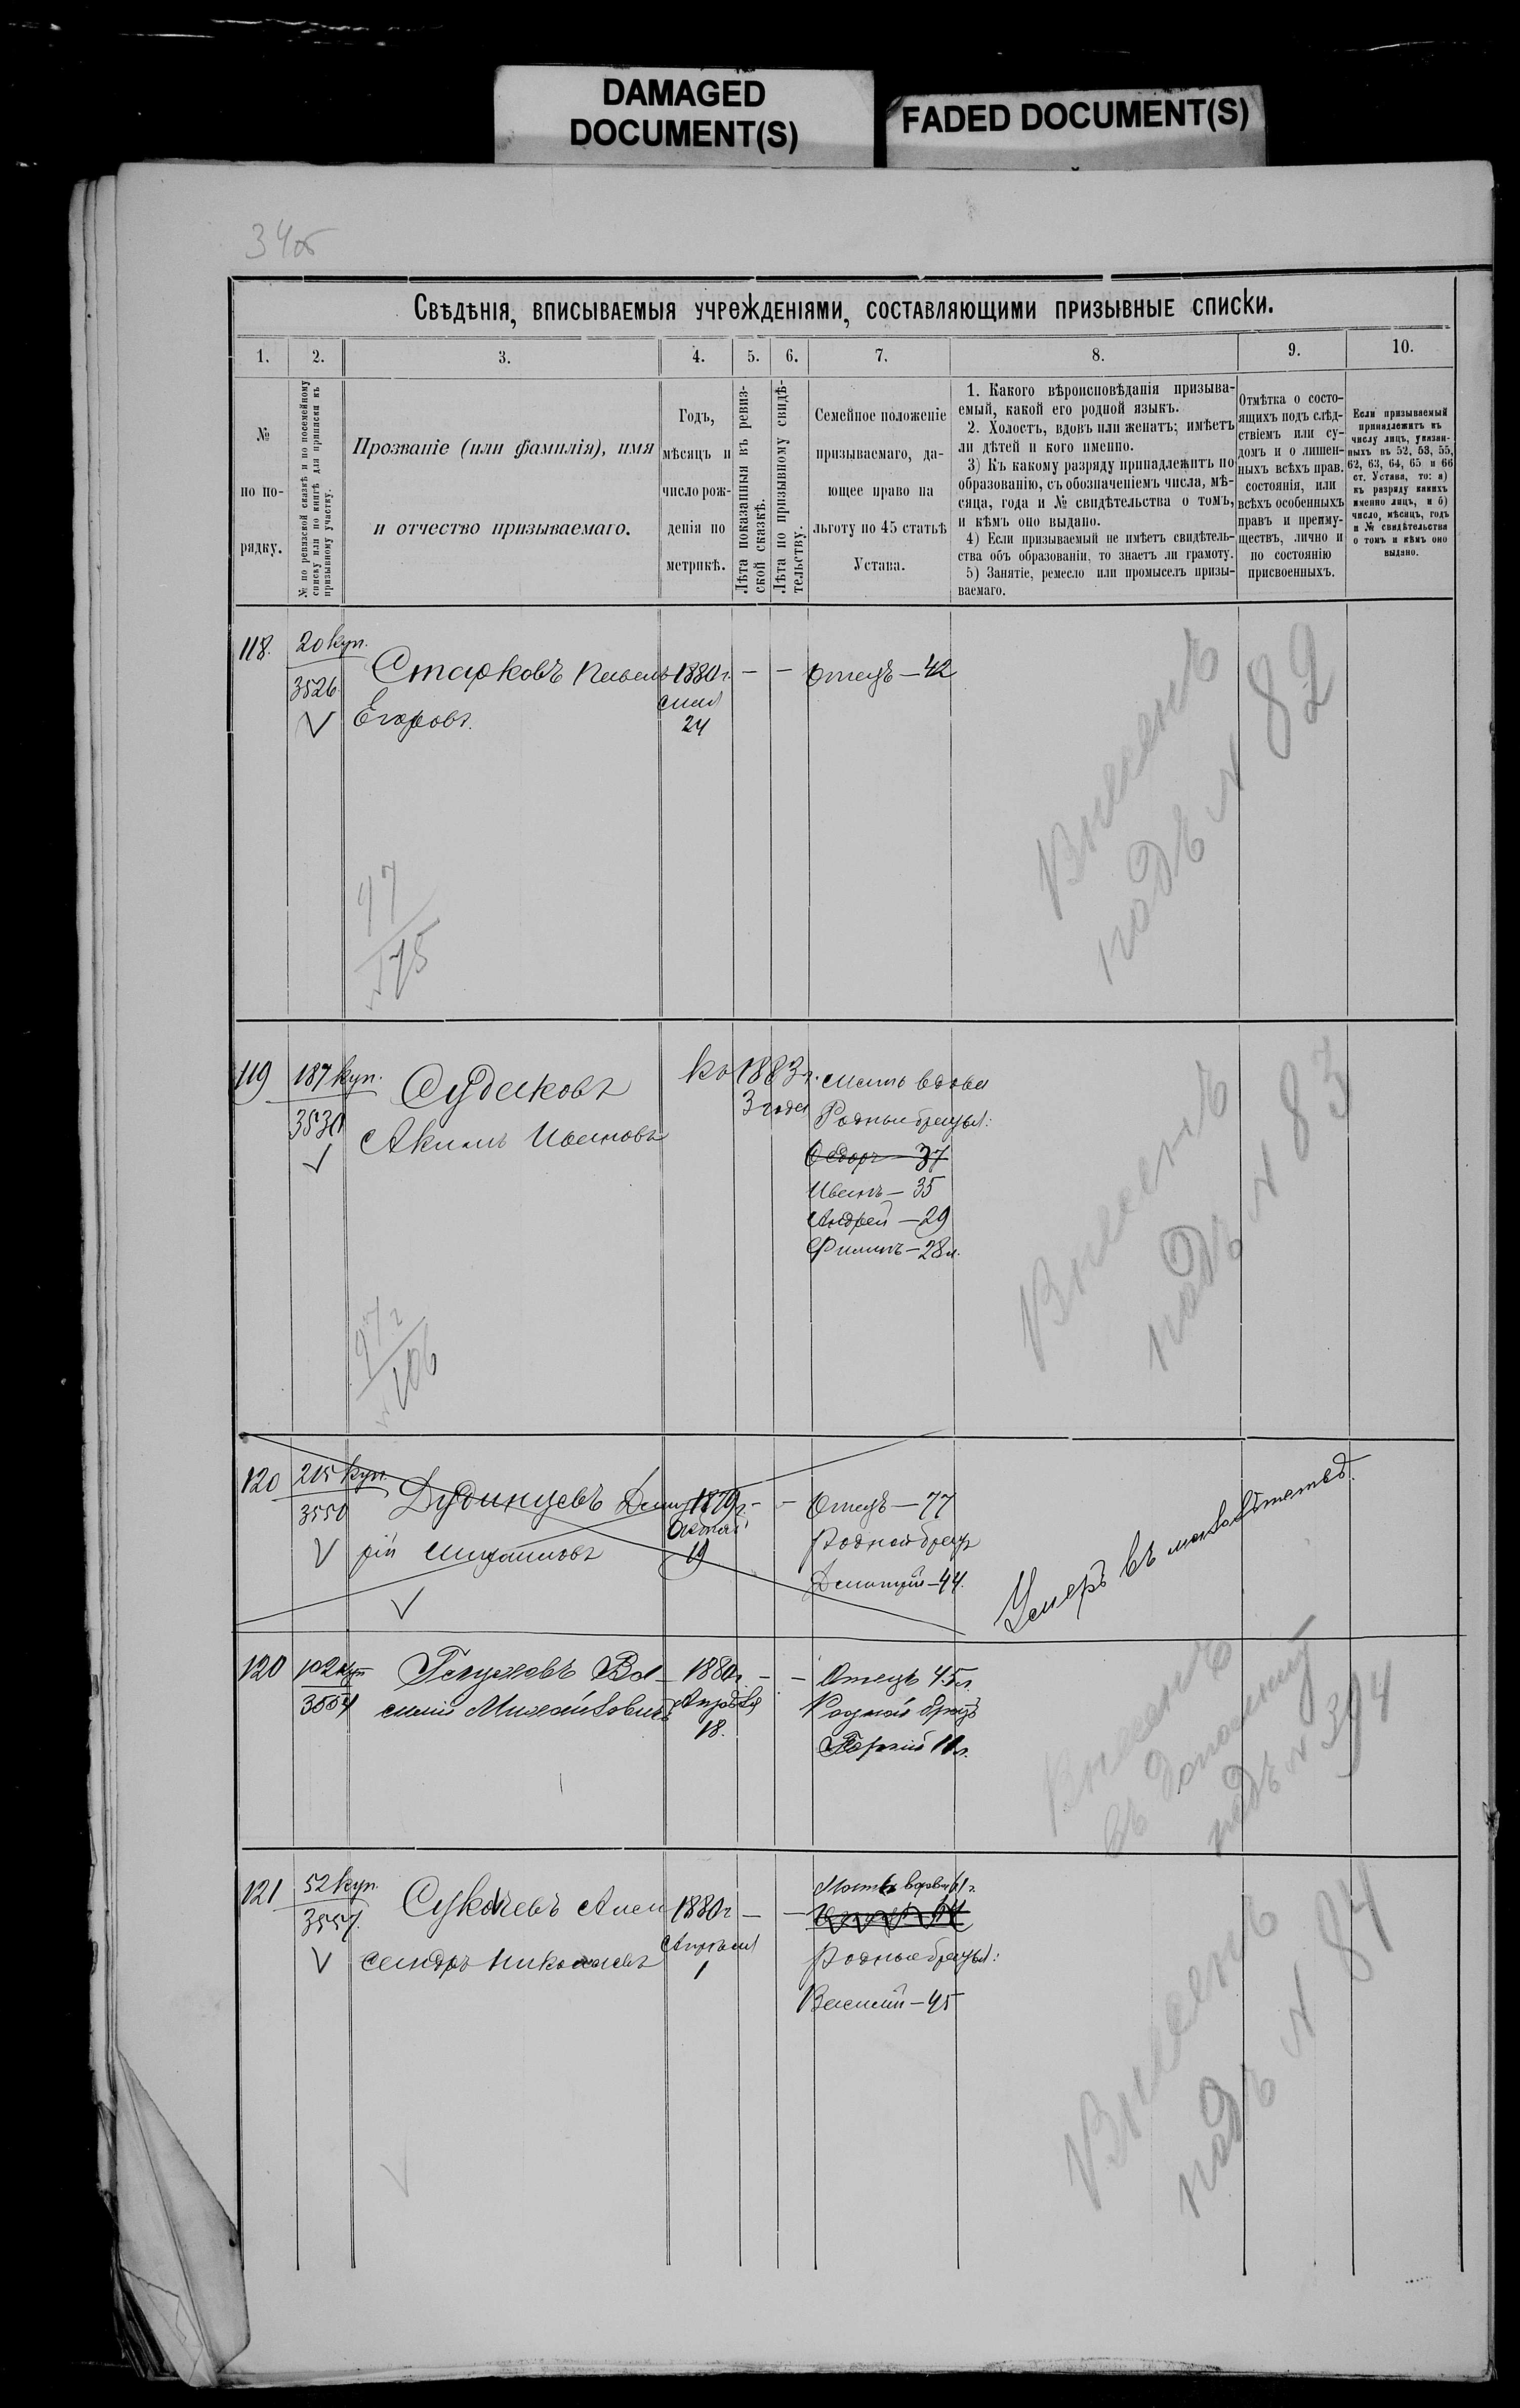 DAMAGED
DOCUMENT(S)
FADED DOCUMENT(S)
34об
Свѣдѣнія, вписываемыя учрежденіями, составляющими призывные списки.
1. 2. 3. 4. 5. 6. 7. 8. 9. 10.
№
по по-
рядку.
№ по ревизской сказкѣ и по посемейному
списку или по книгѣ для приписки къ
призывному участку.
Прозваніе (или фамилія), имя
и отчество призываемаго.
Годъ,
мѣсяцъ и
число рож-
денія по
метрикѣ.
Лѣта показанныя въ ревиз-
ской сказкѣ.
Лѣта по призывному свидѣ-
тельству.
Семейное положеніе
призываемаго, да-
ющее право на
льготу по 45 статьѣ
Устава.
1. Какого вѣроисповѣданія призыва-
емый, какой его родной языкъ.
2. Холостъ, вдовъ или женатъ; имѣетъ
ли дѣтей и кого именно.
3) Къ какому разряду принадлежитъ по
образованію, съ обозначеніемъ числа, мѣ-
сяца, года и № свидѣтельства о томъ,
и кѣмъ оно выдано.
4) Если призываемый не имѣетъ свидѣтель-
ства объ образованіи, то знаетъ ли грамоту.
5) Занятіе, ремесло или промыселъ призы-
ваемаго.
Отмѣтка о состо-
ящихъ подъ слѣд-
ствіемъ или су-
домъ и о лишен-
ныхъ всѣхъ прав.
состоянія, или
всѣхъ особенныхъ
правъ и преиму-
ществъ, лично и
по состоянію
присвоенныхъ.
Если призываемый
принадлежитъ къ
числу лицъ, указан-
ныхъ въ 52, 53, 55,
62, 63, 64, 65 и 66
ст. Устава, то: а)
къ разряду какихъ
именно лицъ, и б)
число, мѣсяцъ, годъ
и № свидѣтельства
о томъ и кѣмъ оно
выдано.
118. 20 куп. Старковъ Павелъ 1880 г. — — Отецъ — 42
3526 Егоровъ. мая
24
Внесенъ
подъ № 82
97
№ 75
119 187 куп. Судаковъ къ 1883 г. мать вдова
3 года Родные братья:
Акимъ Ивановъ
Ѳедоръ — 37
Иванъ — 35
Андрей — 29
Филипъ — 28 л.
Внесенъ
подъ № 83
№ 106
120 215 куп. Дудинцевъ Дмит 1879 г. — — Отецъ — 77
3550 Родной братъ
рій 19
Дмитрій — 44.
Умеръ въ малолѣтствѣ.
120 102 куп Ва- 1880 г. — — Отецъ 45 л.
3554 силій Михайловичъ Апрѣля Родной братъ
18. 11 л.
Внесенъ
въ дополнит
подъ № 394
121 52 куп. Сукачевъ Алек 1880 г — — Мать вдова 61 г.
Апрѣля Родные братья:
сандръ Николаевъ 1
Василій — 45
Внесенъ
подъ № 84